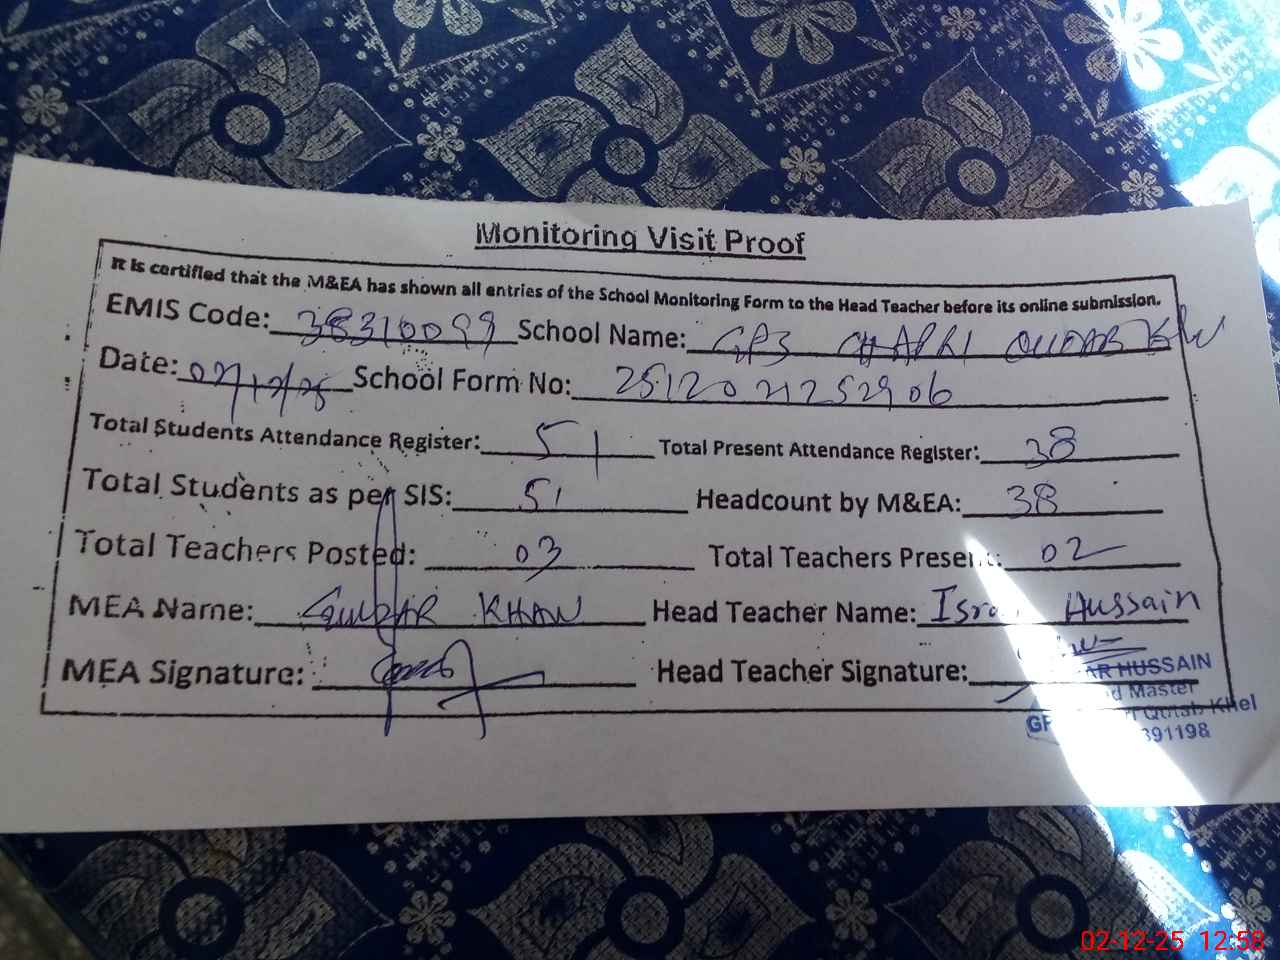 Monitoring Visit Proof
It is certified that the M&EA has shown all entries of the School Monitoring Form to the Head Teacher before its online submission.
EMIS Code: 38310099 School Name: GPS CHAPRI
Date: 02/12/25 School Form No:
Total Students Attendance Register: 51 Total Present Attendance Register: 38
Total Students as per SIS: 51 Headcount by M&EA: 38
Total Teachers Posted: 03 Total Teachers Present: 02
MEA Name: KHAN Head Teacher Name: Hussain
MEA Signature: Head Teacher Signature:
HUSSAIN
Master
Qutab Khel
391198
02-12-25 12:58